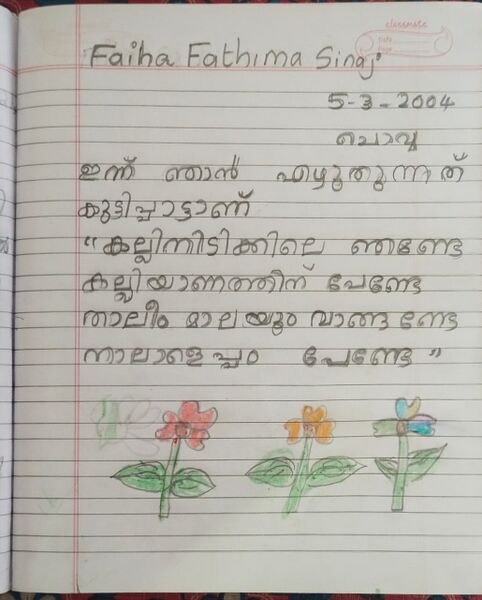 classmate
Date
Page
Faiha Fathima Siraj
5-3-2004
ചൊവ്വ
ഇന്ന് ഞാൻ എഴുതുന്നത്
കുട്ടിപ്പാട്ടാണ്
"കല്ലിന്നിടിക്കിലെ ഞണ്ടേ
കല്ല്യാണത്തിന് പേണ്ടേ
താലീം മാലയും വാങ്ങണ്ടേ
നാലാളെപ്പം പേണ്ടേ"